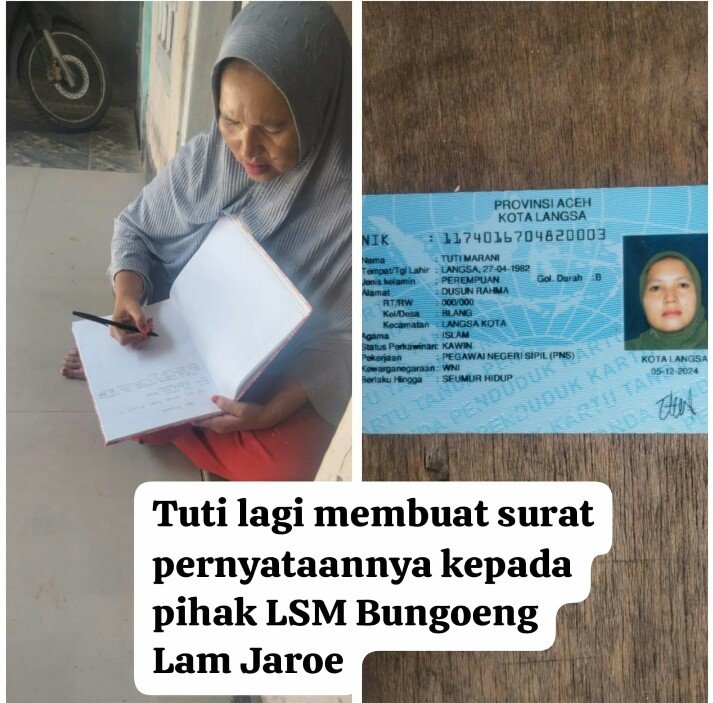 PROVINSI ACEH
KOTA LANGSA
NIK : 1174016704820003
Nama : TUTI MARANI
Tempat/Tgl Lahir : LANGSA, 27-04-1982
Jenis kelamin : PEREMPUAN Gol. Darah : B
Alamat : DUSUN RAHMA
RT/RW : 000/000
Kel/Desa : BLANG
Kecamatan : LANGSA KOTA
Agama : ISLAM
Status Perkawinan: KAWIN
Pekerjaan : PEGAWAI NEGERI SIPIL (PNS)
Kewarganegaraan: WNI
Berlaku Hingga : SEUMUR HIDUP
KOTA LANGSA
05-12-2024
Tuti lagi membuat surat
pernyataannya kepada
pihak LSM Bungoeng
Lam Jaroe